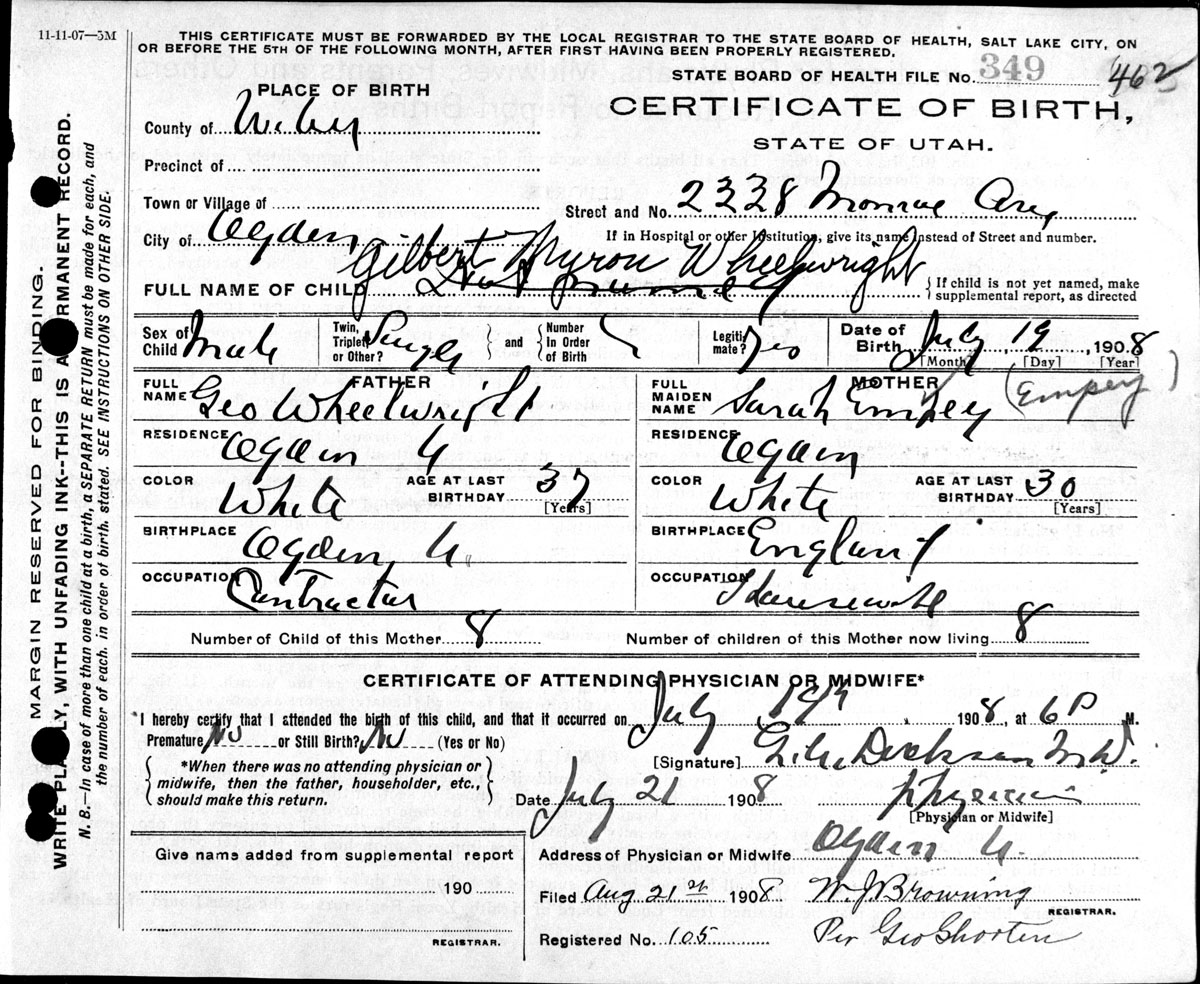 11-11-07—3M
THIS CERTIFICATE MUST BE FORWARDED BY THE LOCAL REGISTRAR TO THE STATE BOARD OF HEALTH, SALT LAKE CITY, ON
OR BEFORE THE 5TH OF THE FOLLOWING MONTH, AFTER FIRST HAVING BEEN PROPERLY REGISTERED.
STATE BOARD OF HEALTH FILE No. 349 462
PLACE OF BIRTH
CERTIFICATE OF BIRTH,
STATE OF UTAH.
County of Weber
Precinct of
Town or Village of
Street and No. 2338 Monroe Ave
City of Ogden
If in Hospital or other Institution, give its name instead of Street and number.
Gilbert Myron Wheelwright
FULL NAME OF CHILD
If child is not yet named, make
supplemental report, as directed
Sex of Child Male
Twin, Triplet or Other? Single
and
Number In Order of Birth
Legitimate? Yes
Date of Birth July 19, 1908
[Month] [Day] [Year]
FATHER
FULL NAME Geo Wheelwright
RESIDENCE Ogden U
COLOR White AGE AT LAST BIRTHDAY 37
[Years]
BIRTHPLACE Ogden U.
OCCUPATION Contractor
MOTHER
FULL MAIDEN NAME Sarah Empey (Empey)
RESIDENCE Ogden
COLOR White AGE AT LAST BIRTHDAY 30
[Years]
BIRTHPLACE England
OCCUPATION Housewife
Number of Child of this Mother 8
Number of children of this Mother now living 8
CERTIFICATE OF ATTENDING PHYSICIAN OR MIDWIFE*
I hereby certify that I attended the birth of this child, and that it occurred on July 19th, 1908, at 6 P M.
Premature No or Still Birth? No (Yes or No)
*When there was no attending physician or
midwife, then the father, householder, etc.,
should make this return.
[Signature] Dickson M.D.
Date July 21 1908 Physician
[Physician or Midwife]
Give name added from supplemental report
190
REGISTRAR.
Address of Physician or Midwife Ogden U.
Filed Aug 21st 1908 W. J. Browning
REGISTRAR.
Registered No. 105 Per Geo Shorten
MARGIN RESERVED FOR BINDING.
WRITE PLAINLY, WITH UNFADING INK--THIS IS A PERMANENT RECORD.
N. B.—In case of more than one child at a birth, a SEPARATE RETURN must be made for each, and
the number of each, in order of birth, stated. SEE INSTRUCTIONS ON OTHER SIDE.